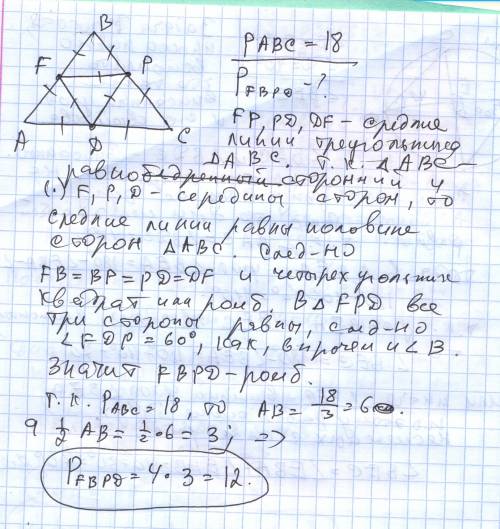 B
F P
A D C
P ABC = 18
P FBPD - ?
FP, PD, DF - средние
линии треугольника
Δ ABC. Т.к. Δ ABC -
равнобедренный сторонний и
(·) F, P, D - середины сторон, то
средние линии равны половине
сторон Δ ABC. След-но
FB = BP = PD = DF и четырехугольник
квадрат или ромб. В Δ FPD все
три стороны равны, след-но
∠ FDP = 60°, как, впрочем и ∠ B.
Значит FBPD - ромб.
Т.к. P ABC = 18, то AB = 18/3 = 6.
а 1/2 AB = 1/2 · 6 = 3; =>
P FBPD = 4 · 3 = 12.